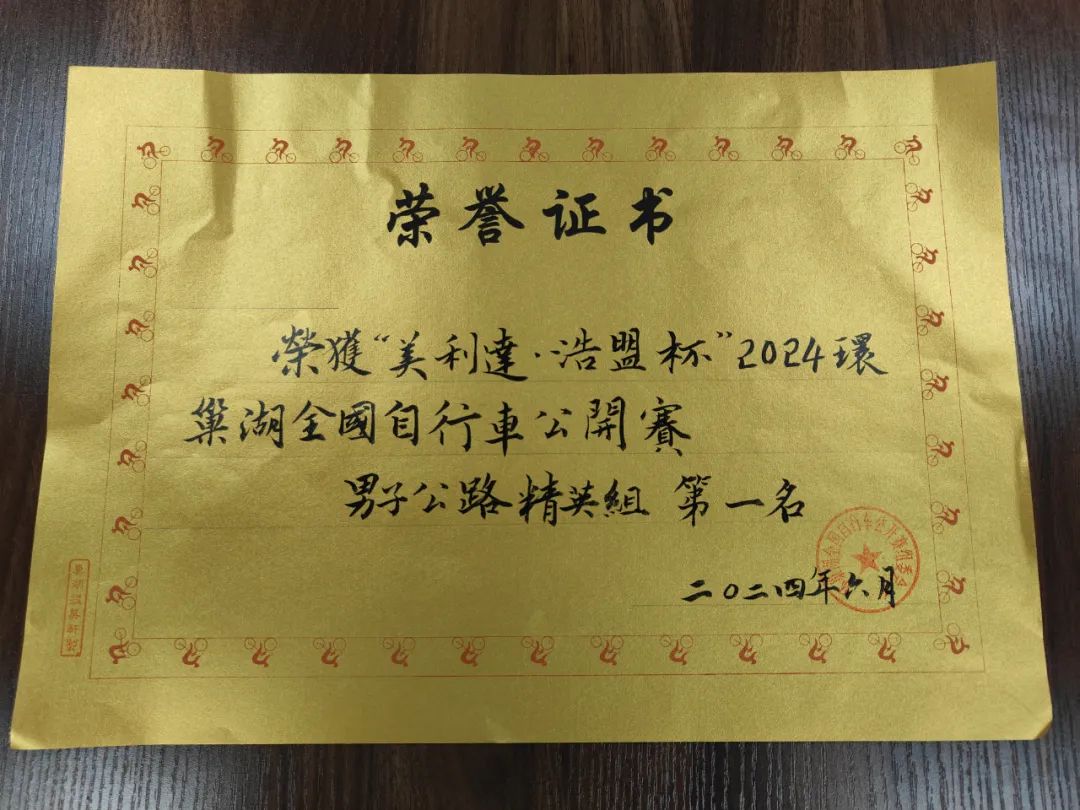 荣誉证书
榮獲“美利達·浩盟杯”2024環
巢湖全國自行車公開賽
男子公路精英組 第一名
二〇二四年六月